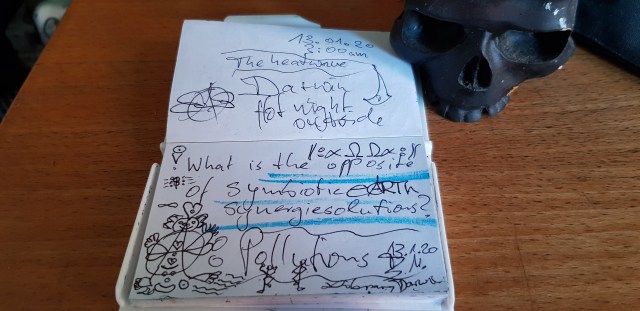 13.01.20
3:00am
The heatwave
Darwin
hot night
outside
! What is the opposite
of symbiotic EARTH
synergiesolutions?
Pollutions 13.1.20